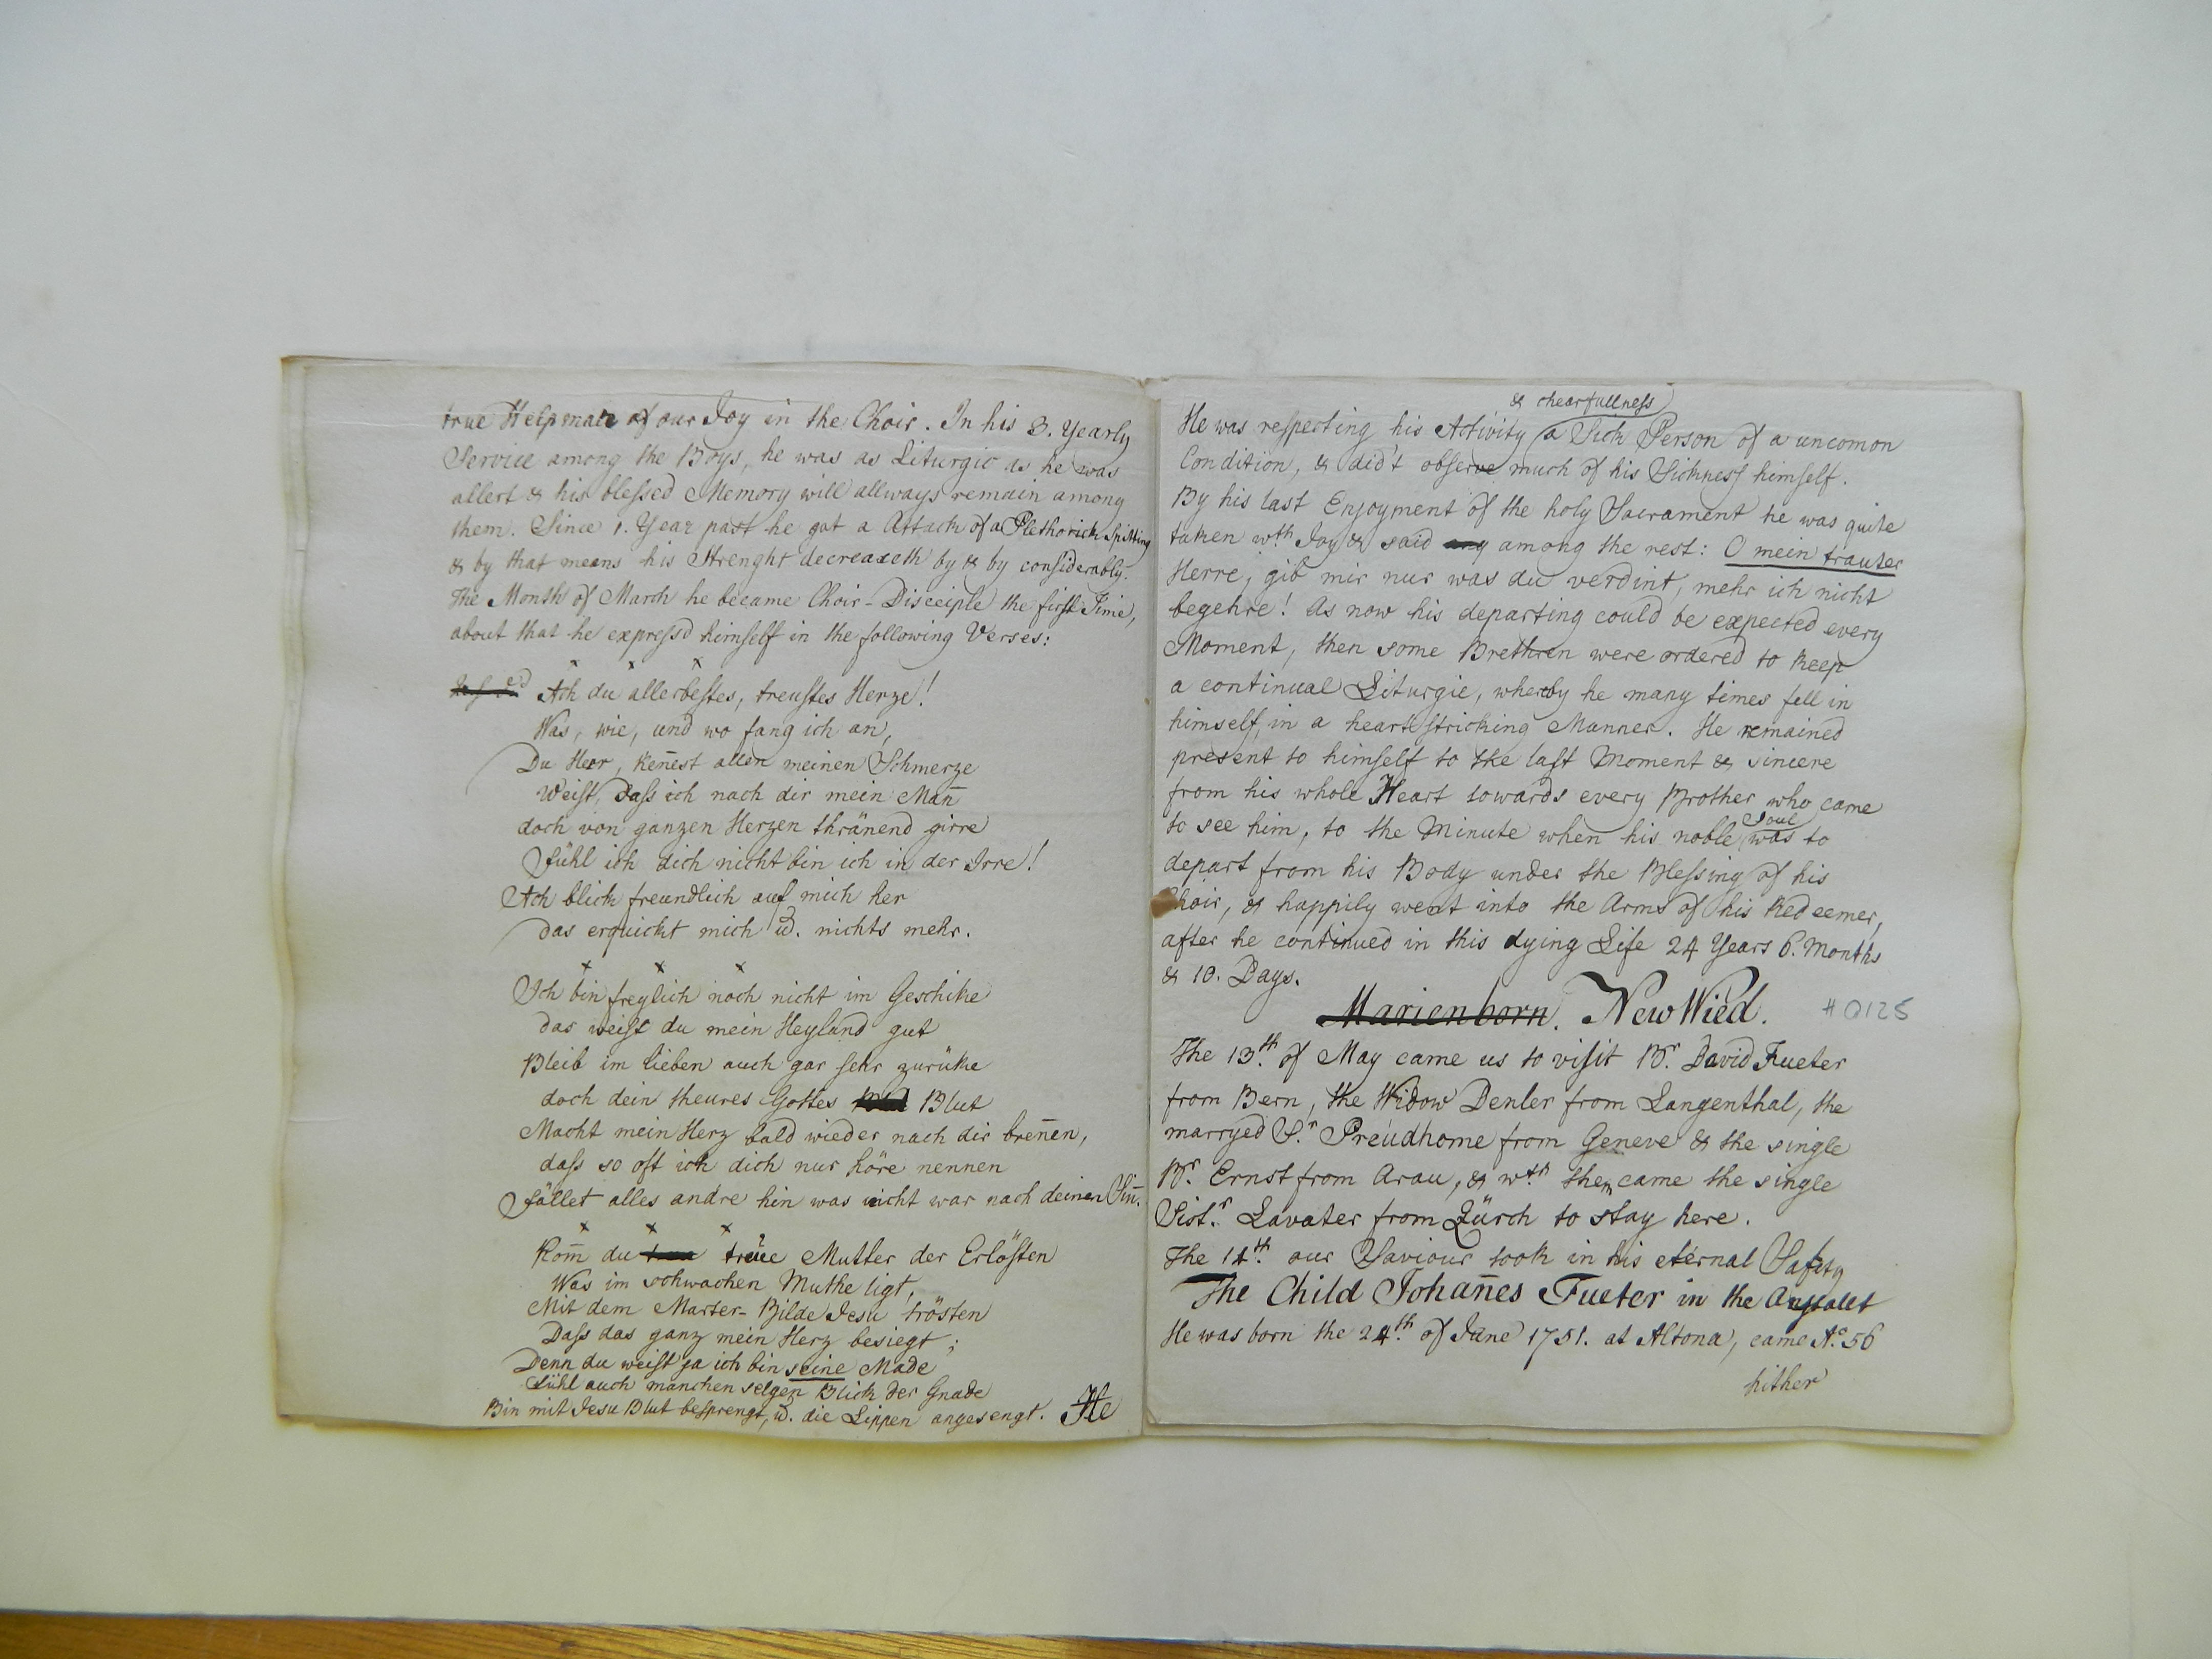 true Helpmate of our Joy in the Choir. In his 3. Yearly
Service among the Boys, he was as Liturgic as he was
allert & his blessed Memory will allways remain among
them. Since 1. Year past he got a Attack of a Plethorick Spitting
& by that means his Strenght decreaseth by & by considerably.
The Month of March he became Choir-Disceiple the first Time,
about that he expressd himself in the following Verses:
x x x
Ach du allerbestes, treustes Herze!
Was, wie, und wo fang ich an,
Du Herr, ken̄est allen meinen Schmerze
Weist, dass ich nach dir mein Man̄
doch von ganzen Herzen thränend girre
Fühl ich dich nicht bin ich in der Irre!
Ach blick freundlich auf mich her
das erquickt mich u. nichts mehr.
x x x
Ich bin freylich noch nicht im Geschike
das weist du mein Heyland gut
Bleib im lieben auch gar sehr zurüke
doch dein theures Gottes Blut
Macht mein Herz bald wieder nach dir bren̄en,
dass so oft ich dich nur höre nennen
Fället alles andre hin was nicht war nach deinen Sin̄.
x x x
Kom̄ du treüe Mutter der Erlösten
Was im schwachen Muthe ligt,
Mit dem Marter-Bilde Jesu trösten
Dass das ganz mein Herz besiegt;
Denn du weist ja ich bin seine Made
Fühl auch manchen selgen Blick der Gnade
Bin mit Jesu Blut besprengt, u. die Lippen angesengt. He
& chearfullness
He was respecting his Activity a Sick Person of a uncomon
Condition, & did't observe much of his Sickness himself.
By his last Enjoyment of the holy Sacrament he was quite
taken wth Joy & said among the rest: O mein trauter
Herre, gib mir nur was du verdint, mehr ich nicht
begehre! As now his departing could be expected every
Moment, then some Brethren were ordered to keep
a continual Liturgie, whereby he many times fell in
himself, in a heartstricking Manner. He remained
present to himself to the last Moment & sincere
from his whole Heart towards every Brother who came
to see him, to the Minute when his noble Soul was to
depart from his Body under the Blessing of his
Choir, & happily went into the Arms of his Redeemer,
after he continued in this dying Life 24 Years 6. Months
& 10. Days.
Marienborn. New Wied. #0125
The 13th. of May came us to visit Br. David Fueter
from Bern, the Widow Denler from Langenthal, the
marryed Sr. Preudhome from Geneve & the single
Br. Ernst from Arau, & wth them came the single
Sistr. Lavater from Zürch to stay here.
The 14th. our Saviour took in his eternal Safety
The Child Johan̄es Fueter in the Anstalt
He was born the 24th. of June 1751. at Altona, came Ao. 56
hither